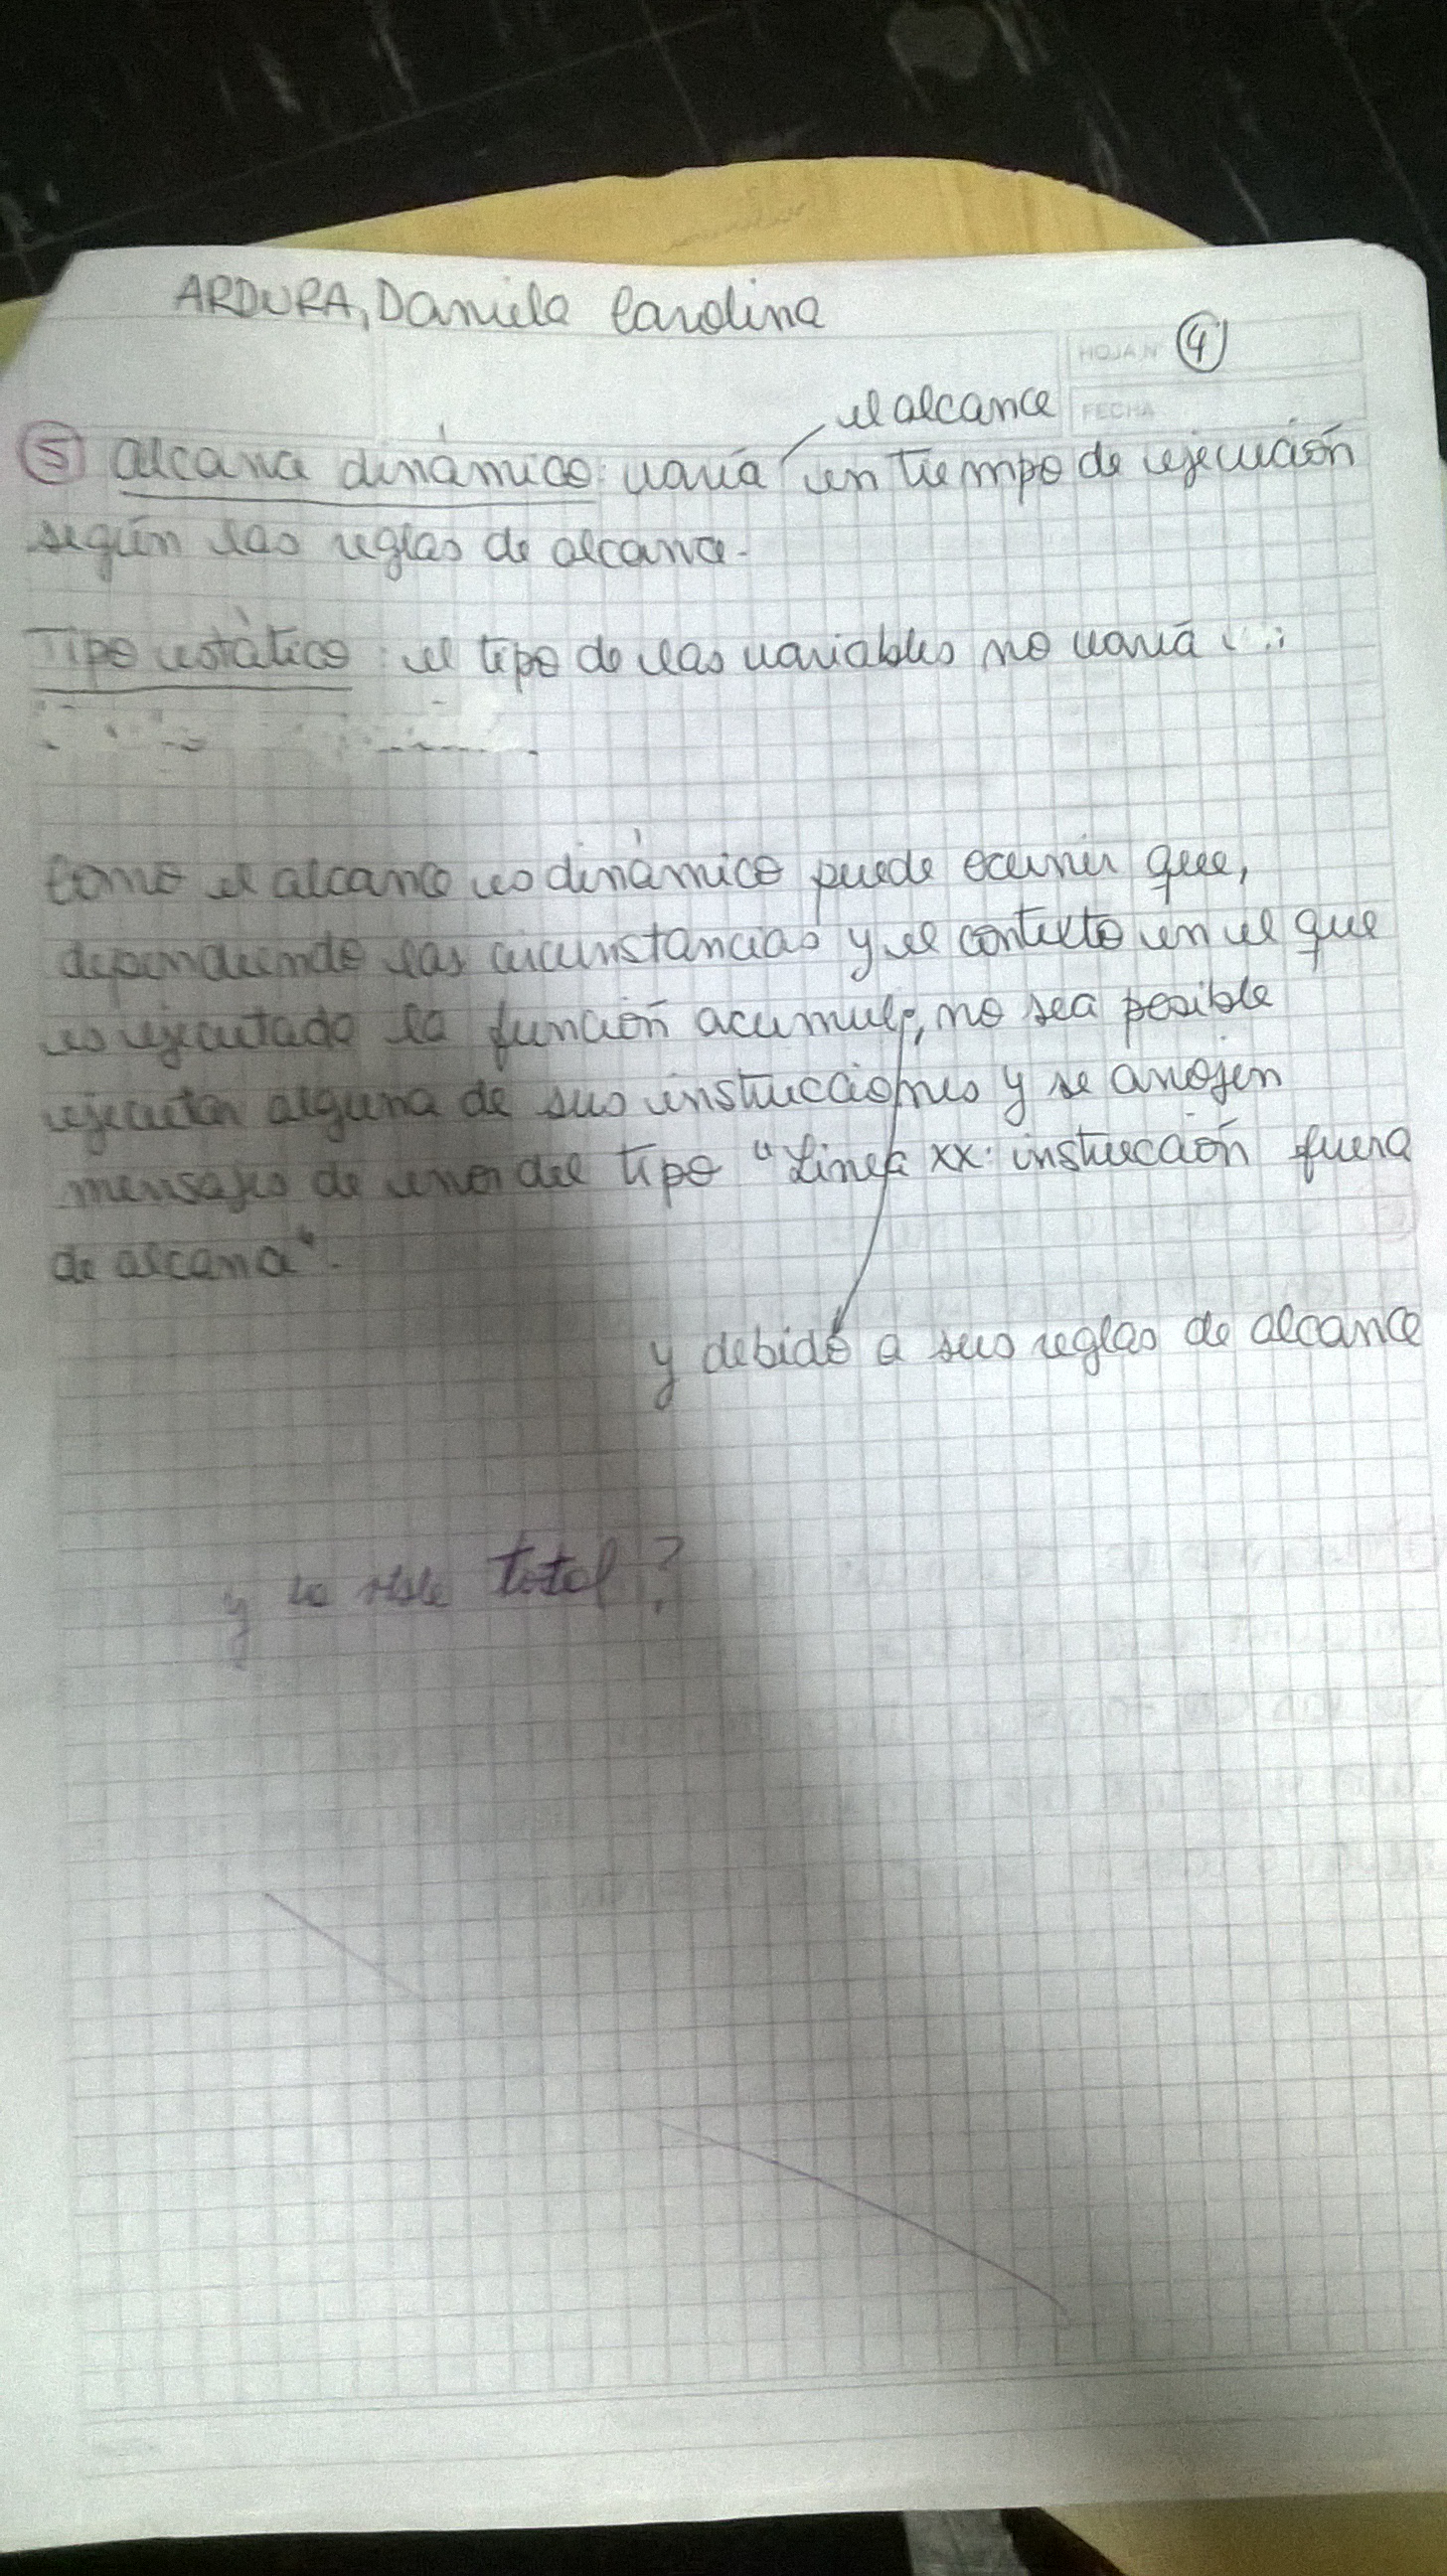 ARDURA, Daniela Carolina
HOJA Nº 4
FECHA
el alcance
5 alcance dinámico: varía en tiempo de ejecución
según las reglas de alcance.
Tipo estático: el tipo de las variables no varía
Como el alcance es dinámico puede ocurrir que,
dependiendo las circunstancias y el contexto en el que
es ejecutada la función acumula, no sea posible
ejecutar alguna de sus instrucciones y se arrojen
mensajes de error del tipo "Línea XX: instrucción fuera
de alcance".
y debido a sus reglas de alcance
y la total?